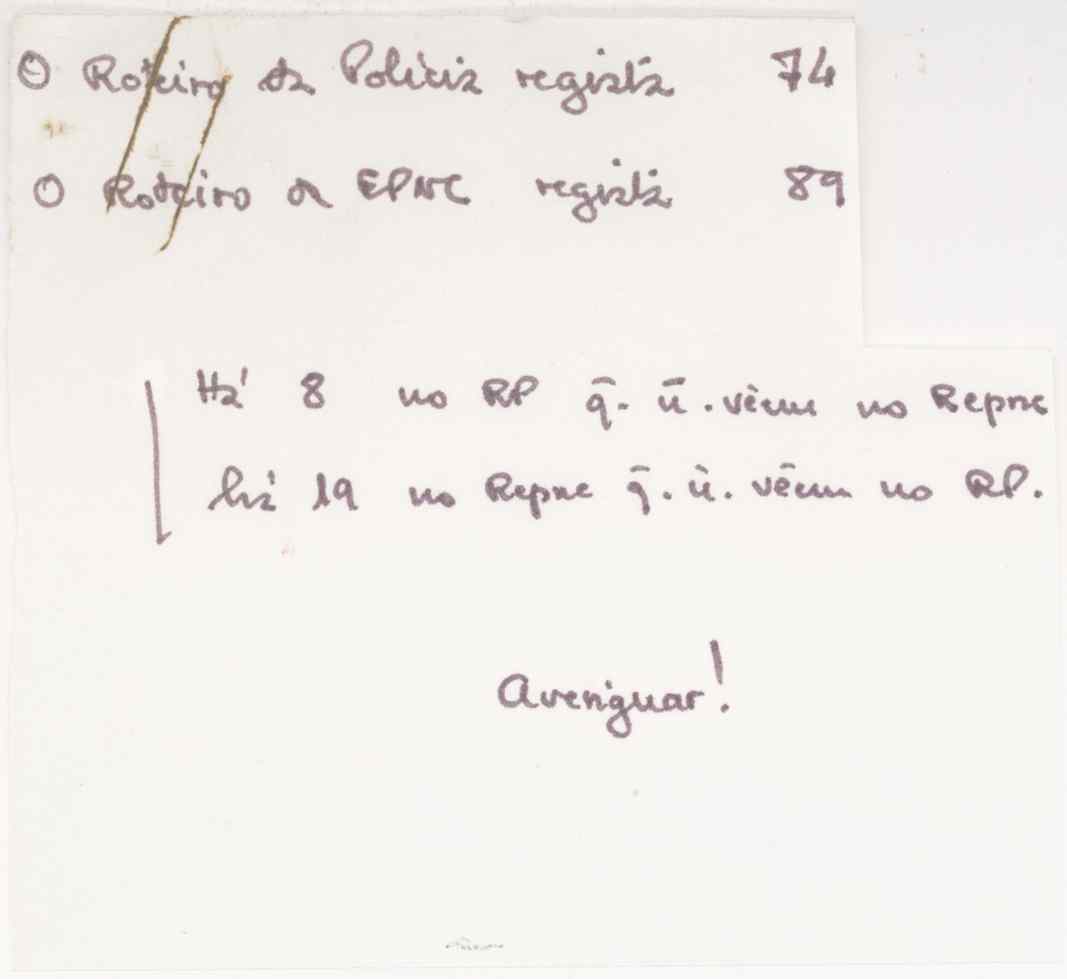 O Roteiro da Polícia regista 74
O Roteiro da EPNC regista 89
Há 8 no RP q̄. ñ. vêem no Repnc
há 19 no Repnc q̄. ñ. vêem no RP.
Averiguar!